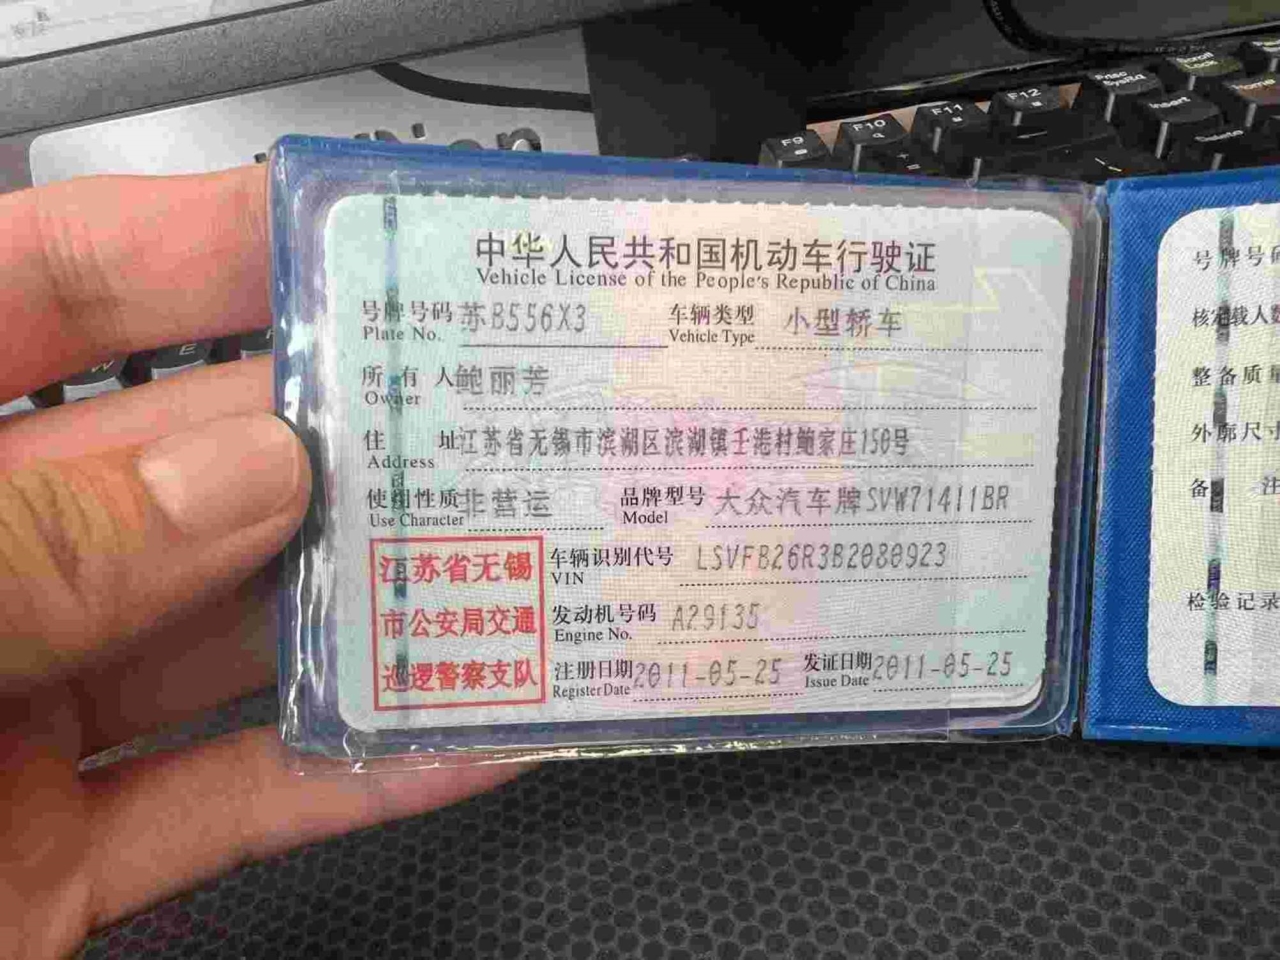 中华人民共和国机动车行驶证
Vehicle License of the People's Republic of China
号牌号码 苏B556X3 车辆类型 小型轿车
Plate No. Vehicle Type
所有人 鲍丽芳
Owner
住址 江苏省无锡市滨湖区滨湖镇壬港村鲍家庄150号
Address
使用性质 非营运 品牌型号 大众汽车牌SVW71411BR
Use Character Model
江苏省无锡
市公安局交通
巡逻警察支队
车辆识别代号 LSVFB26R3B2080923
VIN
发动机号码 A29135
Engine No.
注册日期 2011-05-25 发证日期 2011-05-25
Register Date Issue Date
号牌号码
核定载人数
整备质量
外廓尺寸
备注
检验记录
F9
F10
F11
F12
Prtsc
SysRq
Scroll
Lock
Insert
Home
Delete
W
E